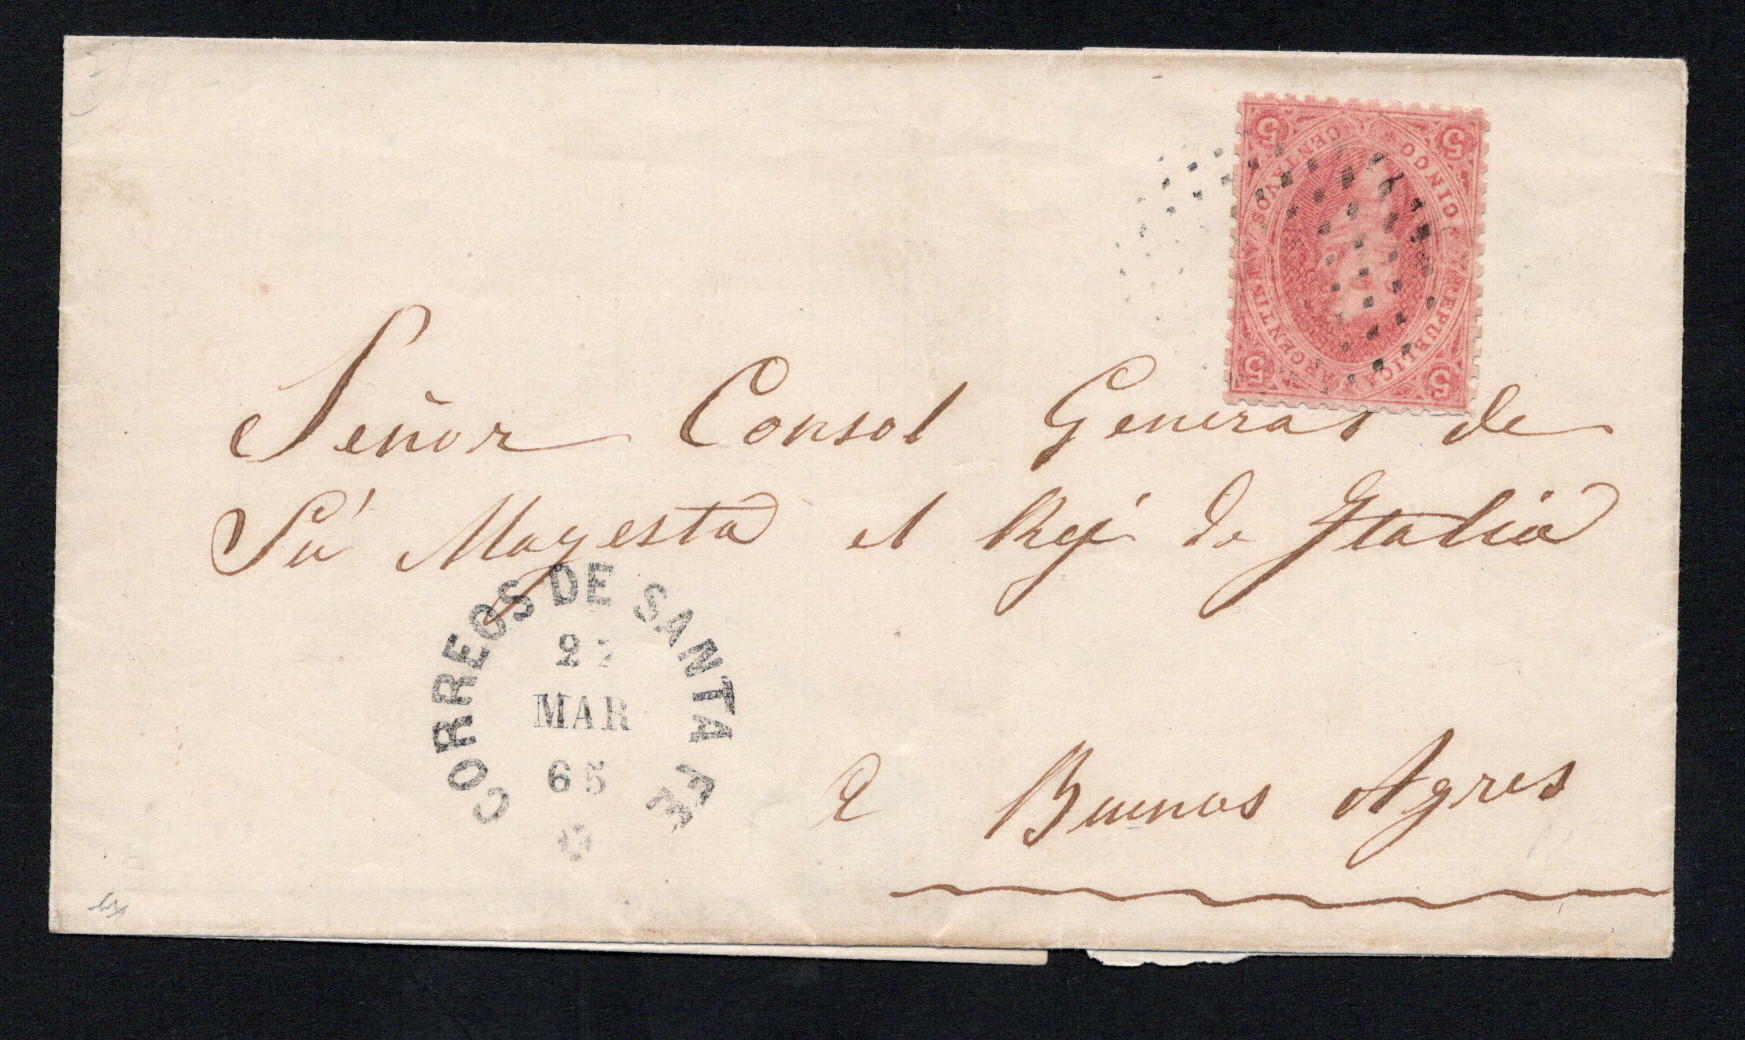 5 5
CINCO CENTAVOS
REPUBLICA ARGENTINA
5 5
Señor Consol General de
Sú Magesta el Rey de Italia
CORREOS DE SANTA FE
MAR
65
a Buenos Ayres